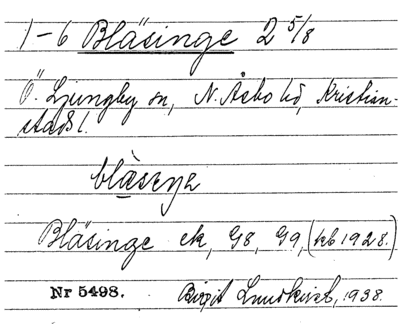 1-6 Bläsinge 2 5/8
Ö. Ljungby sn, N. Åsbo hd, Kristian-
stads l.
Bläsinge ek, G8, G9, (kb 1928.)
Nr 5498. Birgit Lundkvist, 1938.